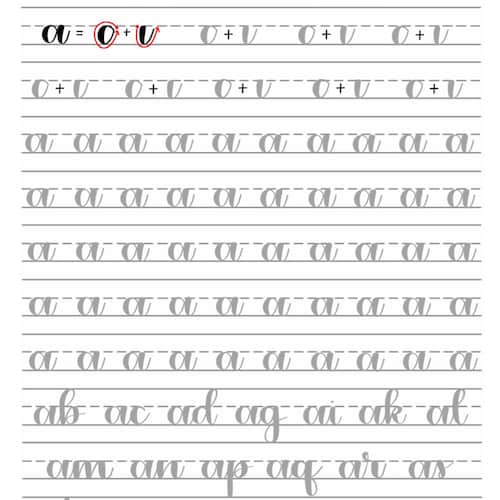 a = o + v o + v o + v o + v
o + v o + v o + v o + v o + v
a a a a a a a a a a
a a a a a a a a a a
a a a a a a a a a a
a a a a a a a a a a
a a a a a a a a a a
ab ac ad ag ai ak al
am an ap aq ar as